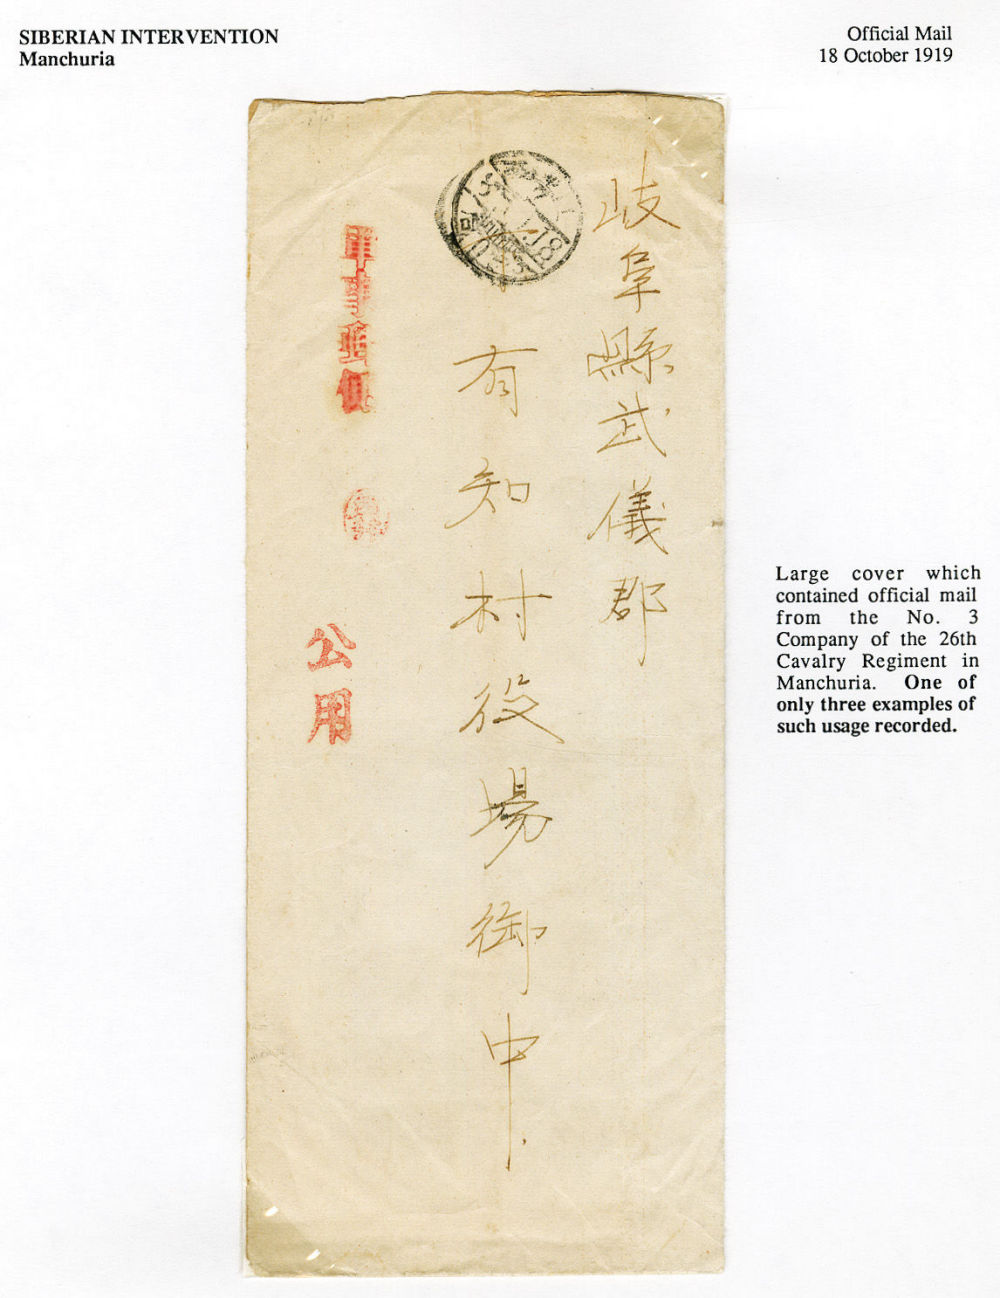 SIBERIAN INTERVENTION
Manchuria
Official Mail
18 October 1919
岐阜縣武儀郡
有知村役場御中
軍事郵便
公用
Large cover which
contained official mail
from the No. 3
Company of the 26th
Cavalry Regiment in
Manchuria. One of
only three examples of
such usage recorded.